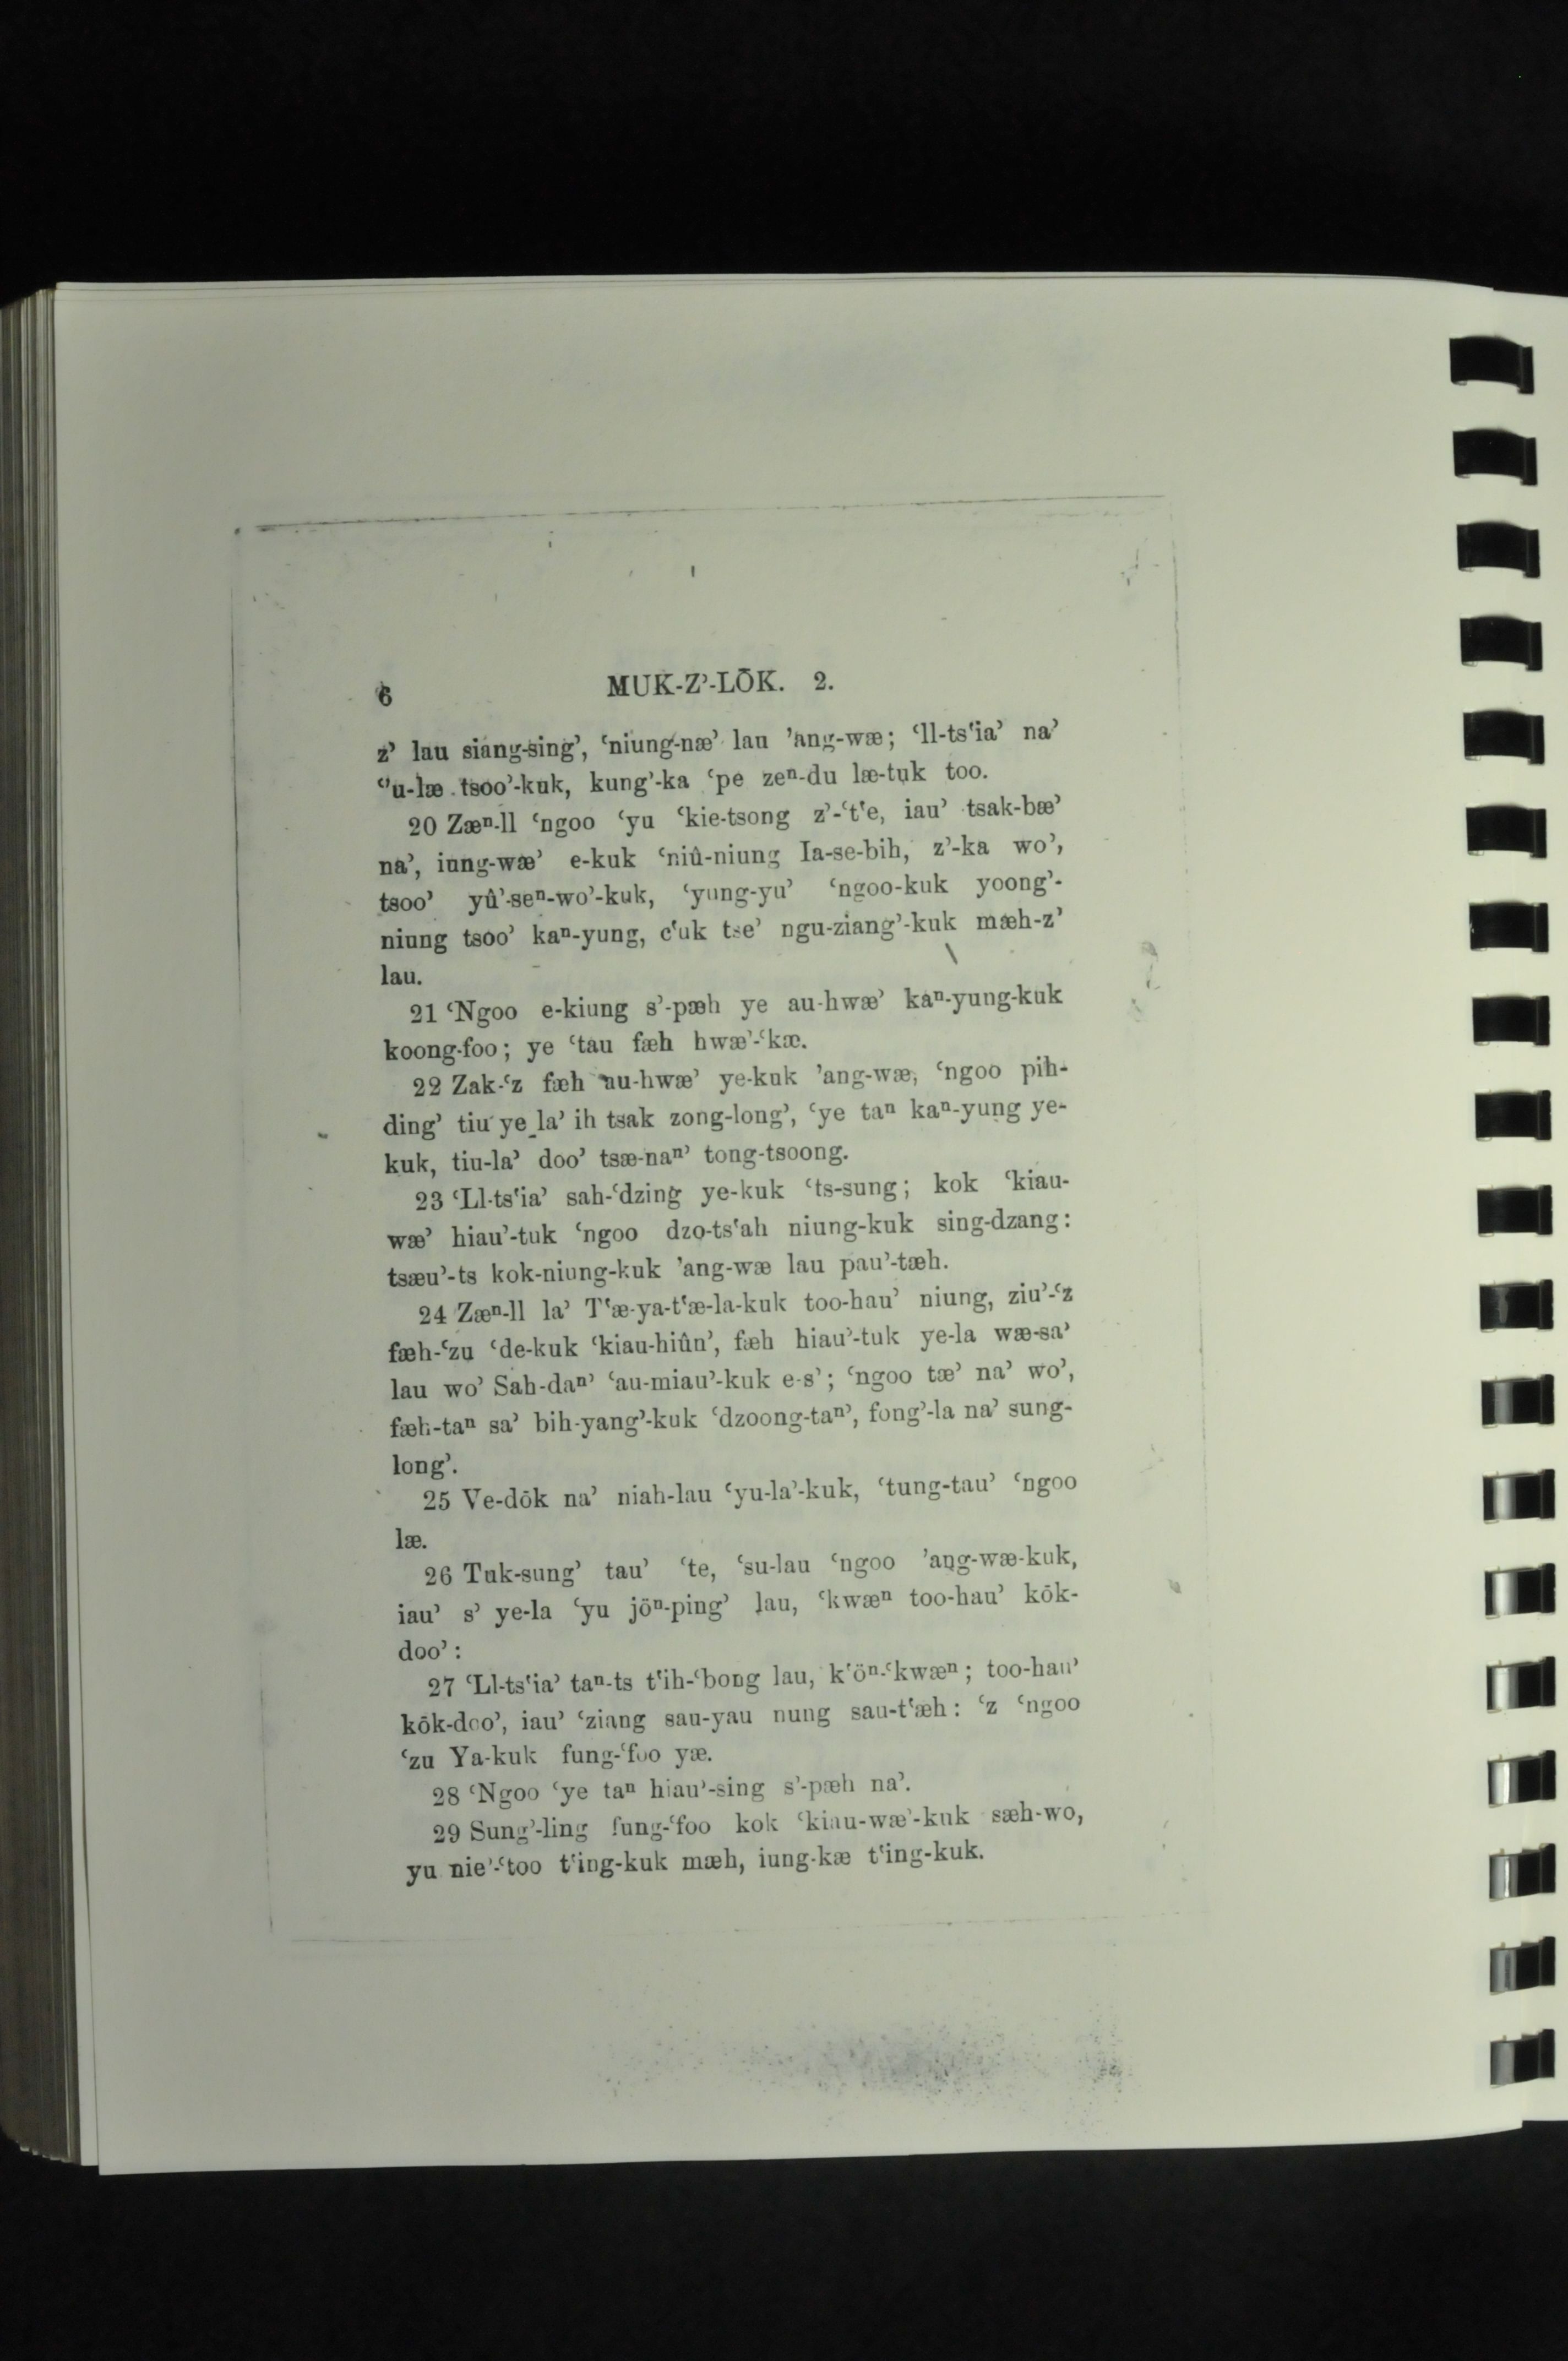 6 MUK-Z’-LŌK. 2.
z’ lau siang-sing’, ‘niung-næ’ lau ’ang-wæ; ‘ll-ts‘ia’ na’
‘’u-læ tsoo’-kuk, kung’-ka ‘pe zeⁿ-du læ-tuk too.
20 Zæⁿ-ll ‘ngoo ‘yu ‘kie-tsong z’-‘t‘e, iau’ tsak-bæ’
na’, iung-wæ’ e-kuk ‘niû-niung Ia-se-bih, z’-ka wo’,
tsoo’ yû’-seⁿ-wo’-kuk, ‘yung-yu’ ‘ngoo-kuk yoong’-
niung tsoo’ kaⁿ-yung, c‘uk tse’ ngu-ziang’-kuk mæh-z’
lau.
21 ‘Ngoo e-kiung s’-pæh ye au-hwæ’ kaⁿ-yung-kuk
koong-foo; ye ‘tau fæh hwæ’-‘kæ.
22 Zak-‘z fæh au-hwæ’ ye-kuk ’ang-wæ, ‘ngoo pih-
ding’ tiu ye la’ ih tsak zong-long’, ‘ye taⁿ kaⁿ-yung ye-
kuk, tiu-la’ doo’ tsæ-naⁿ’ tong-tsoong.
23 ‘Ll-ts‘ia’ sah-‘dzing ye-kuk ‘ts-sung; kok ‘kiau-
wæ’ hiau’-tuk ‘ngoo dzo-ts‘ah niung-kuk sing-dzang:
tsæu’-ts kok-niung-kuk ’ang-wæ lau pau’-tæh.
24 Zæⁿ-ll la’ T‘æ-ya-t‘æ-la-kuk too-hau’ niung, ziu’-‘z
fæh-‘zu ‘de-kuk ‘kiau-hiûn’, fæh hiau’-tuk ye-la wæ-sa’
lau wo’ Sah-daⁿ’ ‘au-miau’-kuk e-s’; ‘ngoo tæ’ na’ wo’,
fæh-taⁿ sa’ bih-yang’-kuk ‘dzoong-taⁿ’, fong’-la na’ sung-
long’.
25 Ve-dōk na’ niah-lau ‘yu-la’-kuk, ‘tung-tau’ ‘ngoo
læ.
26 Tuk-sung’ tau’ ‘te, ‘su-lau ‘ngoo ’ang-wæ-kuk,
iau’ s’ ye-la ‘yu jöⁿ-ping’ lau, ‘kwæⁿ too-hau’ kōk-
doo’:
27 ‘Ll-ts‘ia’ taⁿ-ts t‘ih-‘bong lau, k‘öⁿ-‘kwæⁿ; too-hau’
kōk-doo’, iau’ ‘ziang sau-yau nung sau-t‘æh: ‘z ‘ngoo
‘zu Ya-kuk fung-‘foo yæ.
28 ‘Ngoo ‘ye taⁿ hiau’-sing s’-pæh na’.
29 Sung’-ling fung-‘foo kok ‘kiau-wæ’-kuk sæh-wo,
yu nie’-‘too t‘ing-kuk mæh, iung-kæ t‘ing-kuk.